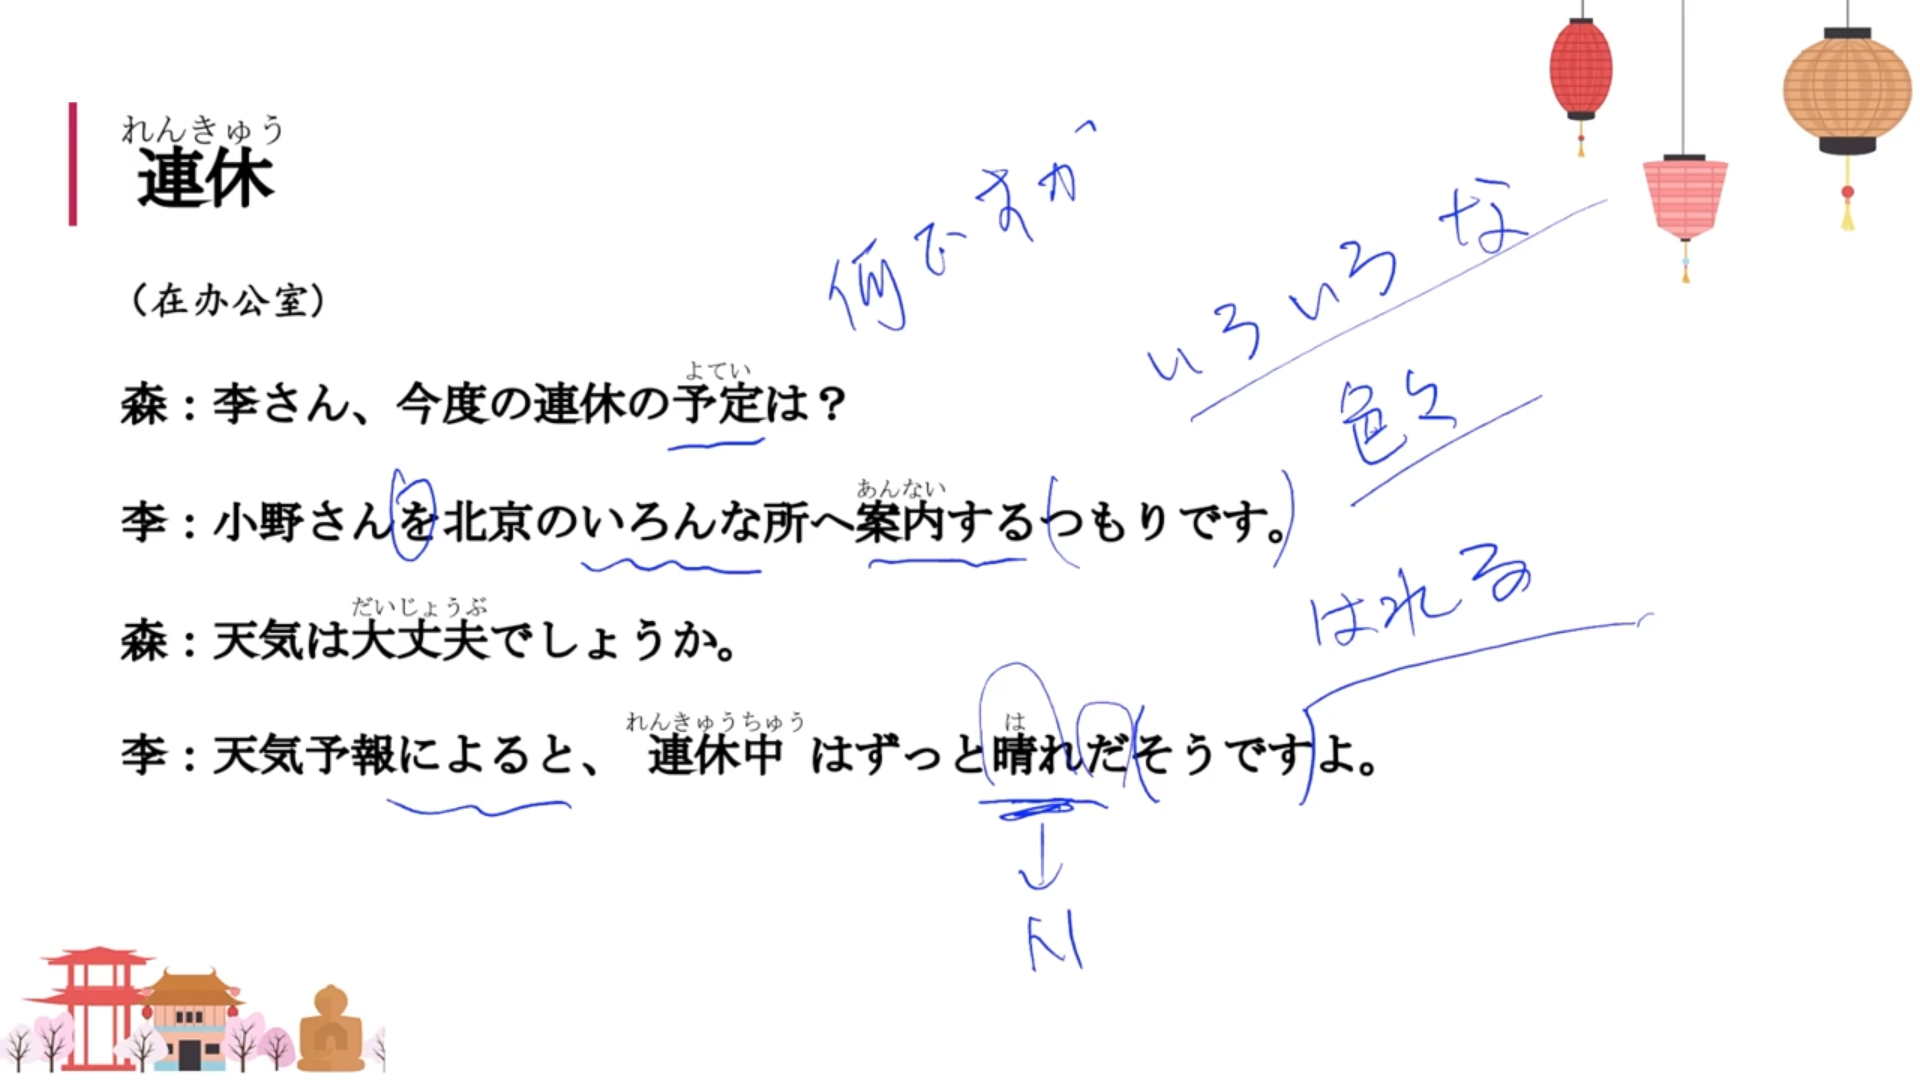 れんきゅう
連休
何ですか
いろいろな
色々
(在办公室)
よてい
森：李さん、今度の連休の予定は？
あんない
李：小野さんを北京のいろんな所へ案内するつもりです。
はれる
だいじょうぶ
森：天気は大丈夫でしょうか。
れんきゅうちゅう は
李：天気予報によると、連休中はずっと晴れだそうですよ。
N